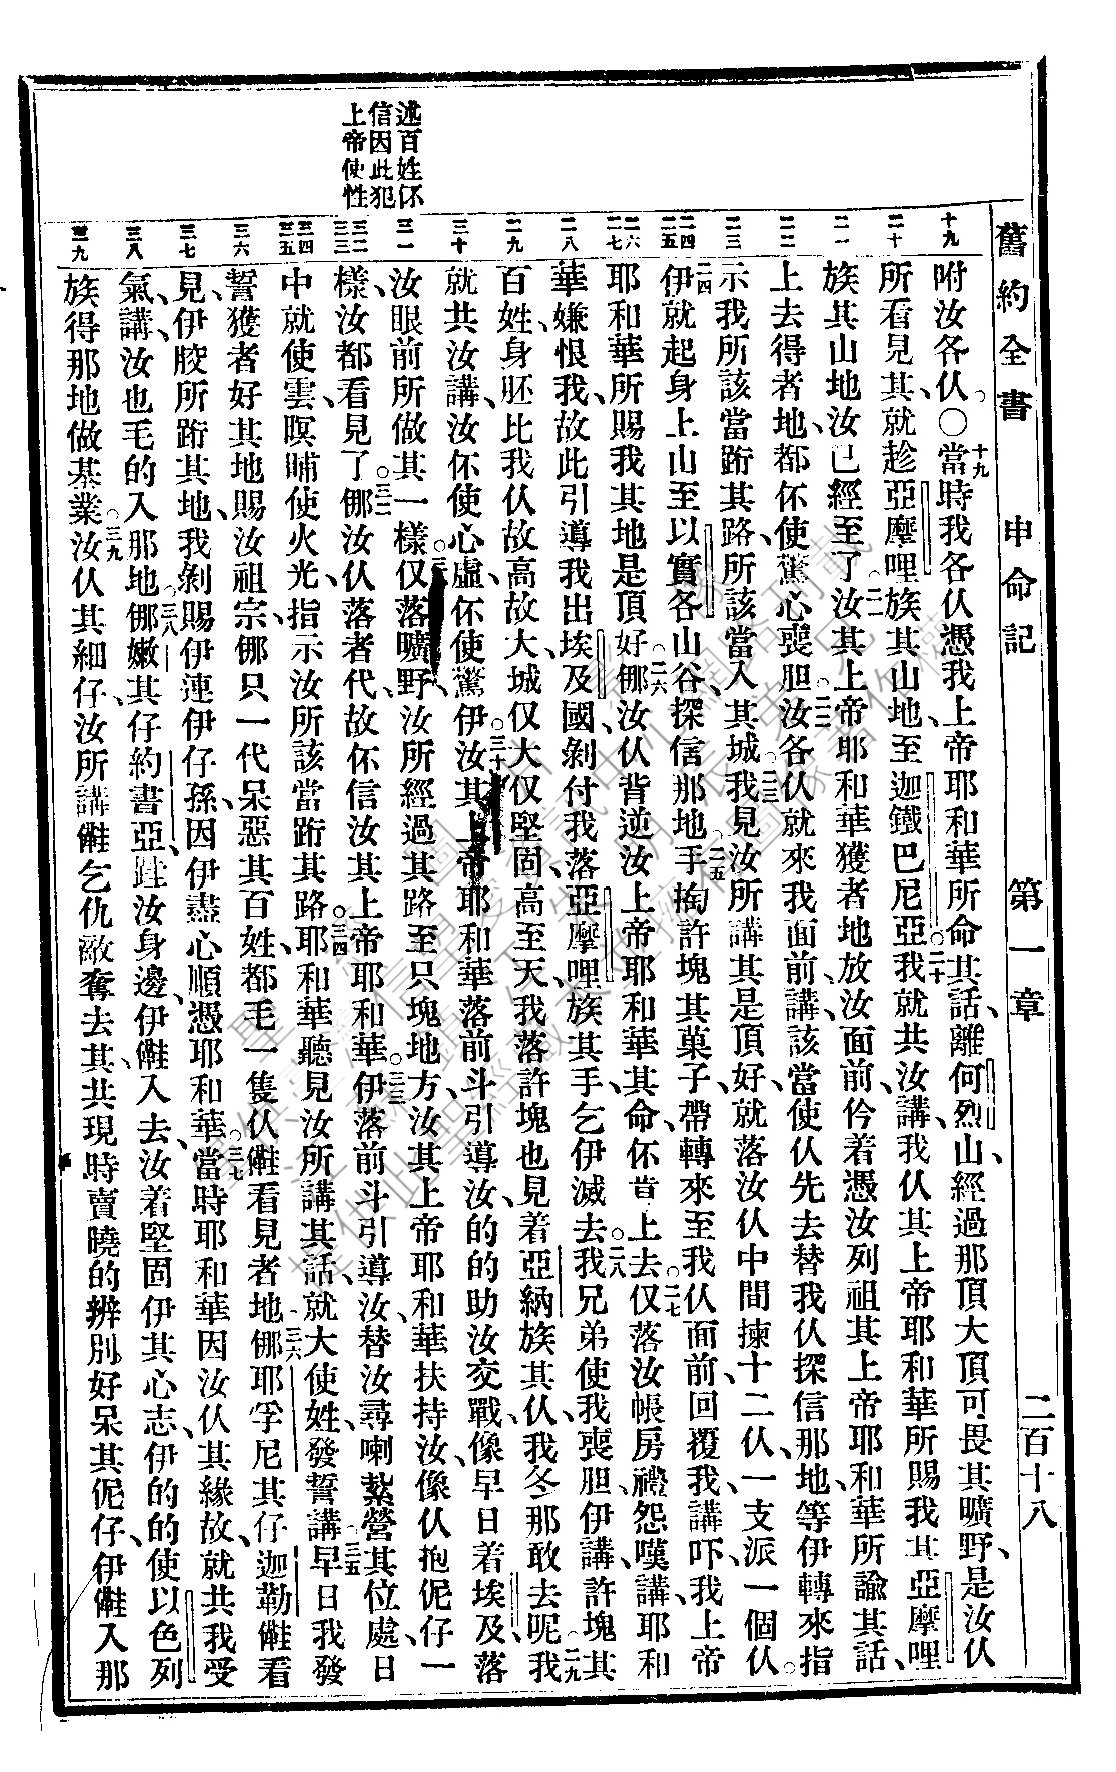 舊約全書 申命記 第一章 二百十八
述百姓伓
信因此犯
上帝使性
十九
二十
二一
二二
二三
二四 二五
二六 二七
二八
二九
三十
三一
三二 三三
三四 三五
三六
三七
三八
三九
附汝各仈。〇十九當時我各仈憑我上帝耶和華所命其話、離何烈山、經過那頂大頂可畏其曠野、是汝仈
所看見其、就趁亞摩哩族其山地、至迦鐵巴尼亞。二十我就共汝講、我仈其上帝耶和華所賜我其亞摩哩
族其山地、汝已經至了。二一汝其上帝耶和華獲者地放汝面前、伱着憑汝列祖其上帝耶和華所諭其話、
上去得者地、都伓使驚心喪胆。二二汝各仈就來我面前、講、該當使仈先去替我仈探信那地、等伊轉來指
示我所該當跨其路、所該當入其城。二三我見汝所講其是頂好、就落汝仈中間揀十二仈、一支派一個仈。
二四伊就起身上山、至以實各山谷、探信那地。二五手掏許塊其菓子、帶轉來至我仈面前、回覆我講、吓、我上帝
耶和華所賜我其地是頂好。二六㑚汝仈背逆汝上帝耶和華其命、伓肯上去。二七仅落汝帳房禮怨嘆講、耶和
華嫌恨我、故此引導我出埃及國、剝付我落亞摩哩族其手、乞伊滅去。二八我兄弟使我喪胆、伊講、許塊其
百姓、身胚比我仈故高故大、城仅大仅堅固高至天、我落許塊也見着亞納族其仈、我冬那敢去呢。二九我
就共汝講、汝伓使心虛、伓使驚伊。三十汝其上帝耶和華落前斗引導汝、的的助汝交戰、像早日着埃及、落
汝眼前所做其一樣。仅落曠野、汝所經過其路、至只塊地方、汝其上帝耶和華扶持汝、像仈抱伲仔一
樣、汝都看見了。三二㑚汝仈落者代、故伓信汝其上帝耶和華。三三伊落前斗引導汝、替汝尋喇紮營其位處、日
中就使雲、暝晡使火光、指示汝所該當跨其路。三四耶和華聽見汝所講其話、就大使姓、發誓講、三五早日我發
誓獲者好其地賜汝祖宗、㑚只一代呆惡其百姓、都毛一隻仈㒰看見者地。三六㑚耶孚尼其仔迦勒㒰看
見、伊腔所跨其地、我剝賜伊連伊仔孫、因伊盡心順憑耶和華。三七當時耶和華因汝仈其緣故、就共我受
氣、講、汝也毛的入那地。三八㑚嫩其仔約書亞、跬汝身邊、伊㒰入去、汝着堅固伊其心志、伊的的使以色列
族得那地做基業。三九汝仈其細仔、汝所講㒰乞仇敵奪去其、共現時賣曉的辨別好呆其伲仔、伊㒰入那